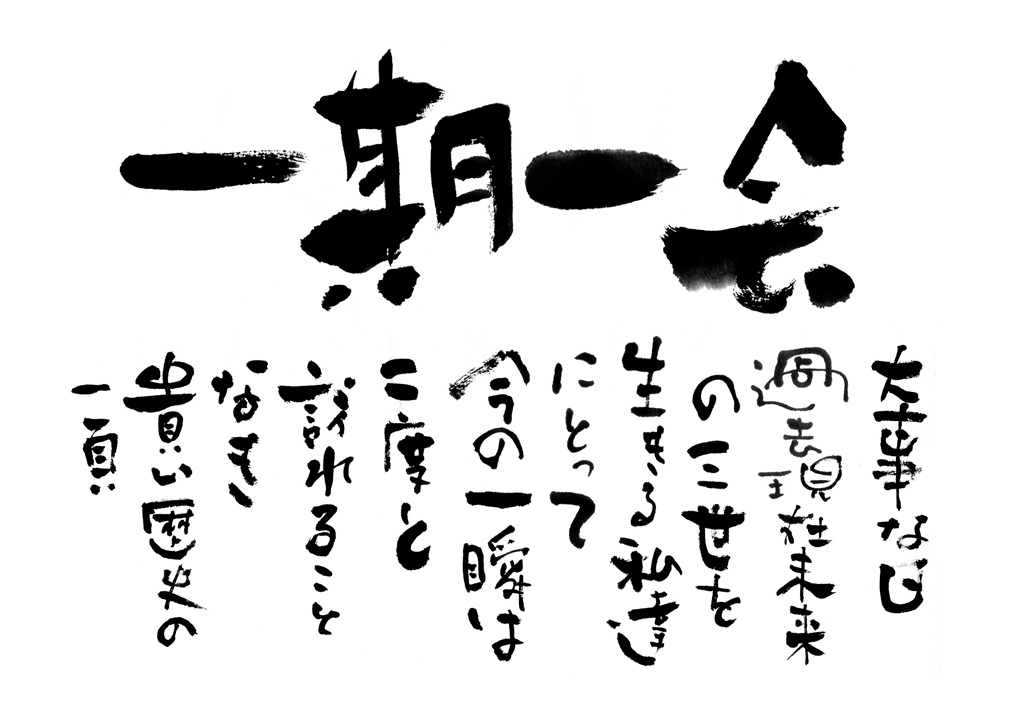 一期一会
大事な日
過去現在未来
の三世を
生きる私達
にとって
今の一瞬は
二度と
訪れること
なき
貴い歴史の
一頁